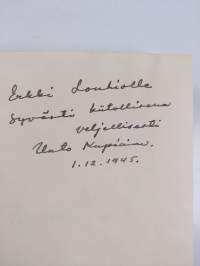 Erkki Louhiolle
syvästi kiitollisena
veljellisesti
Unto Kupiainen.
1.12.1945.